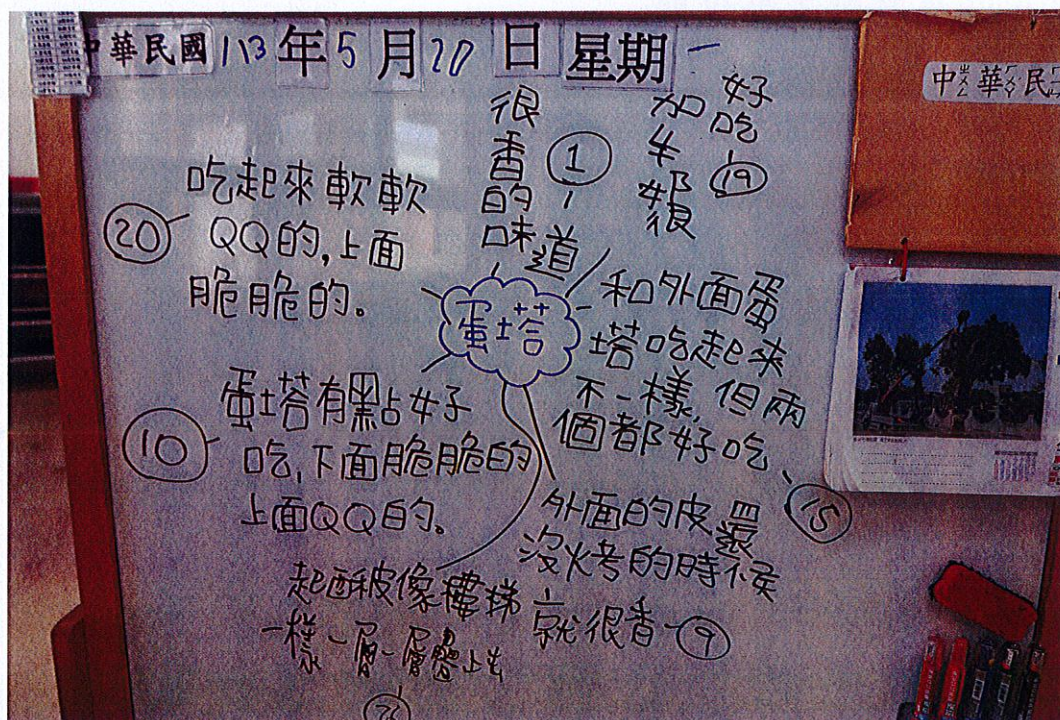 中華民國113年5月20日星期一
中華民
很香的味道
1
加牛奶很
好吃
19
吃起來軟軟
QQ的,上面
脆脆的。
20
蛋塔
和外面蛋
塔吃起來
不一樣,但兩
個都好吃
15
蛋塔有點好
吃,下面脆脆的
上面QQ的。
10
外面的皮還
沒烤的時候
就很香
9
起酥皮像樓梯
一樣一層一層疊上去